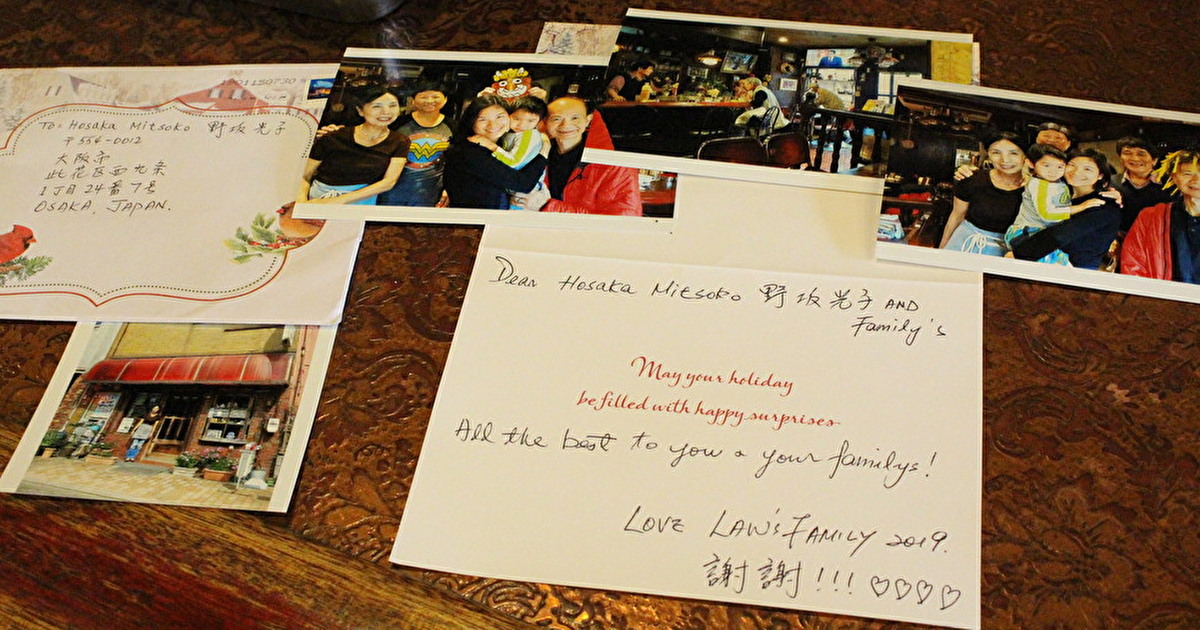 To: Hosaka Mitsoko 野坂光子
〒554-0012
大阪市
此花区西九条
1丁目24番7号
OSAKA, JAPAN.
Dear Hosaka Mitsoko 野坂光子 AND
Family's
May your holiday
be filled with happy surprises
All the best to you & your familys!
LOVE LAW'S FAMILY 2019.
謝謝!!! ♡♡♡♡